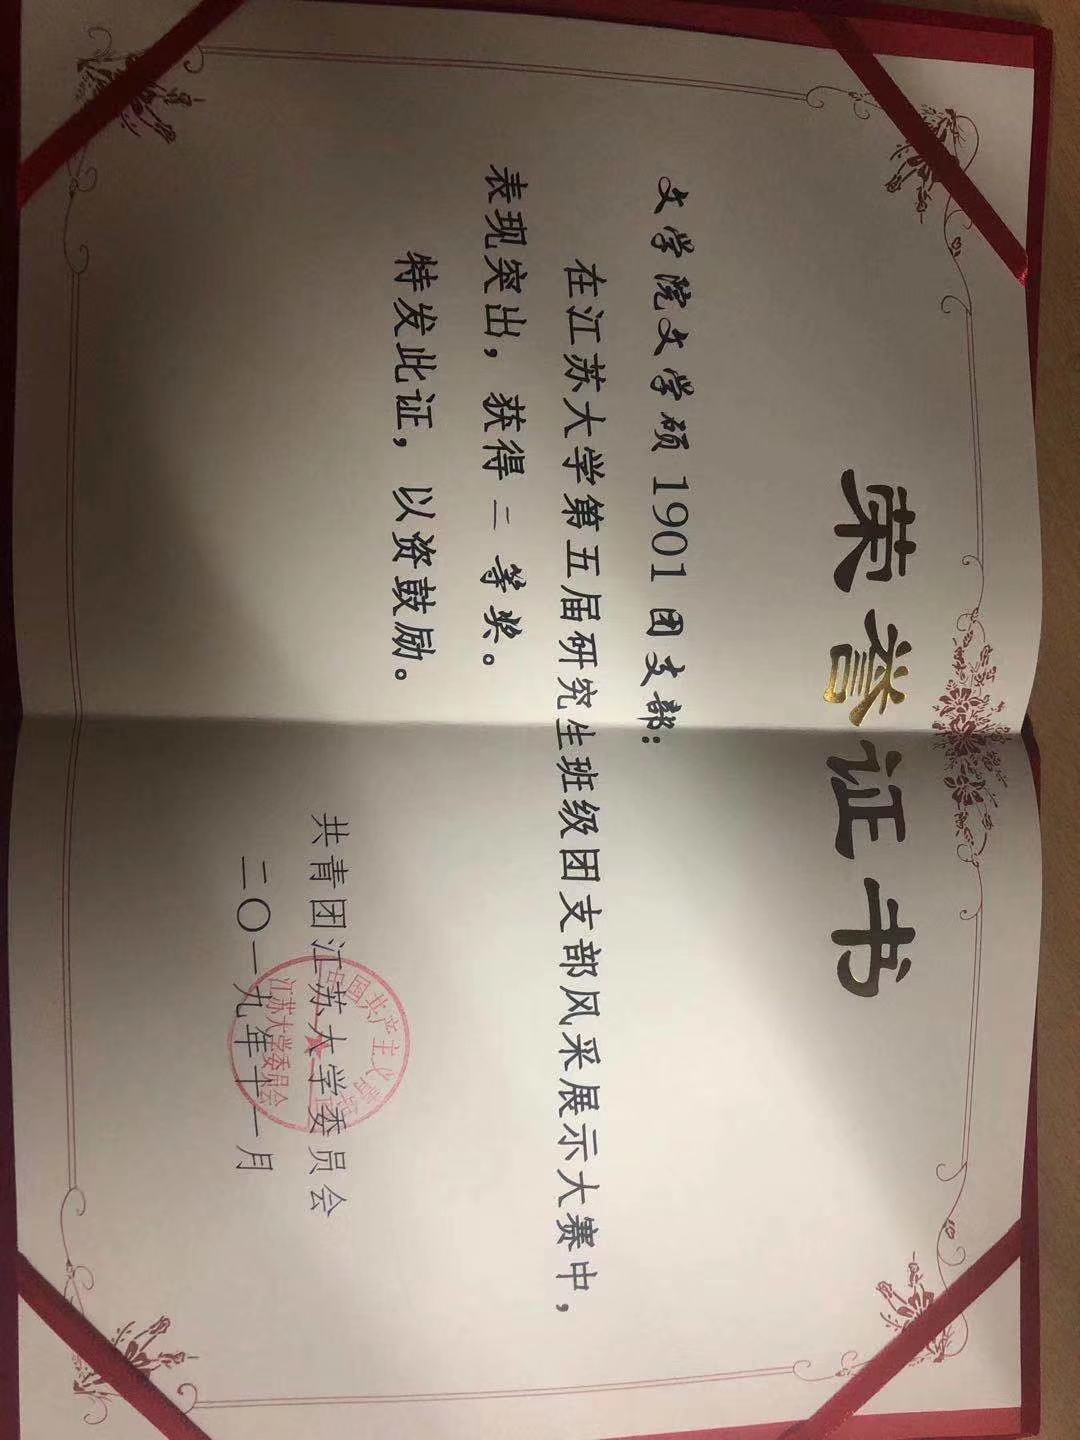 荣誉证书
文学院文学硕1901团支部:
在江苏大学第五届研究生班级团支部风采展示大赛中,
表现突出,获得二等奖。
特发此证,以资鼓励。
共青团江苏大学委员会
二〇一九年十一月
中国共产主义青年团
江苏大学委员会